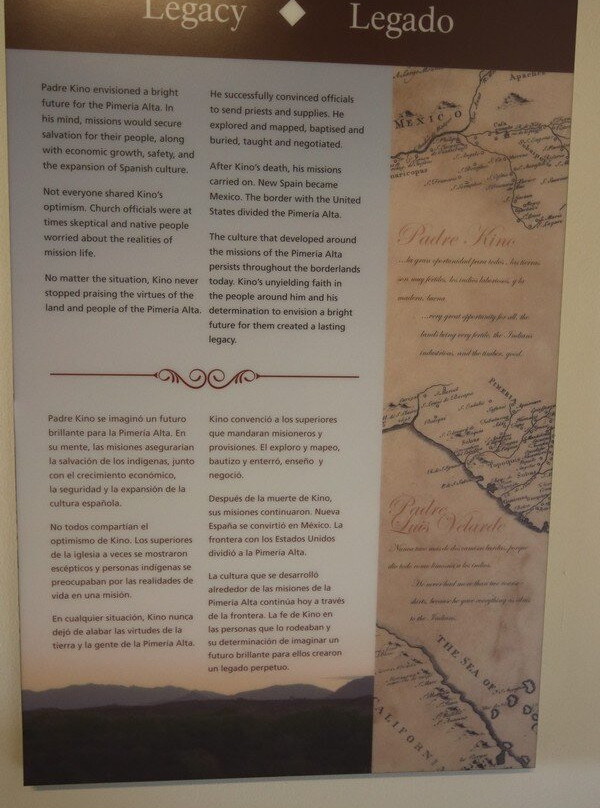 Legacy
Legado
Padre Kino envisioned a bright
future for the Pimería Alta. In
his mind, missions would secure
salvation for their people, along
with economic growth, safety, and
the expansion of Spanish culture.
Not everyone shared Kino's
optimism. Church officials were at
times skeptical and native people
worried about the realities of
mission life.
No matter the situation, Kino never
stopped praising the virtues of the
land and people of the Pimería Alta.
He successfully convinced officials
to send priests and supplies. He
explored and mapped, baptised and
buried, taught and negotiated.
After Kino's death, his missions
carried on. New Spain became
Mexico. The border with the United
States divided the Pimería Alta.
The culture that developed around
the missions of the Pimería Alta
persists throughout the borderlands
today. Kino's unyielding faith in
the people around him and his
determination to envision a bright
future for them created a lasting
legacy.
Padre Kino se imaginó un futuro
brillante para la Pimería Alta. En
su mente, las misiones asegurarían
la salvación de los indígenas, junto
con el crecimiento económico,
la seguridad y la expansión de la
cultura española.
No todos compartían el
optimismo de Kino. Los superiores
de la iglesia a veces se mostraron
escépticos y personas indígenas se
preocupaban por las realidades de
vida en una misión.
En cualquier situación, Kino nunca
dejó de alabar las virtudes de la
tierra y la gente de la Pimería Alta.
Kino convenció a los superiores
que mandaran misioneros y
provisiones. El exploro y mapeo,
bautizo y enterró, enseño y
negoció.
Después de la muerte de Kino,
sus misiones continuaron. Nueva
España se convirtió en México. La
frontera con los Estados Unidos
dividió a la Pimería Alta.
La cultura que se desarrolló
alrededor de las misiones de la
Pimería Alta continúa hoy a través
de la frontera. La fe de Kino en
las personas que lo rodeaban y
su determinación de imaginar un
futuro brillante para ellos crearon
un legado perpetuo.
Apache
MEXICO
Padre Kino
...la gran oportunidad para todos. Sus tierras
son muy fertiles, los indios laboriosos, y la
madera, buena.
...very great opportunity for all, the
lands being very fertile, the Indians
industrious, and the timber, good.
PIMERIA
Padre
Luis Velarde
Nunca tuvo más de dos camisas
todo
He never had more than two
shirts, because he gave everything
to the Indians.
THE SEA OF
CALIFORNIA